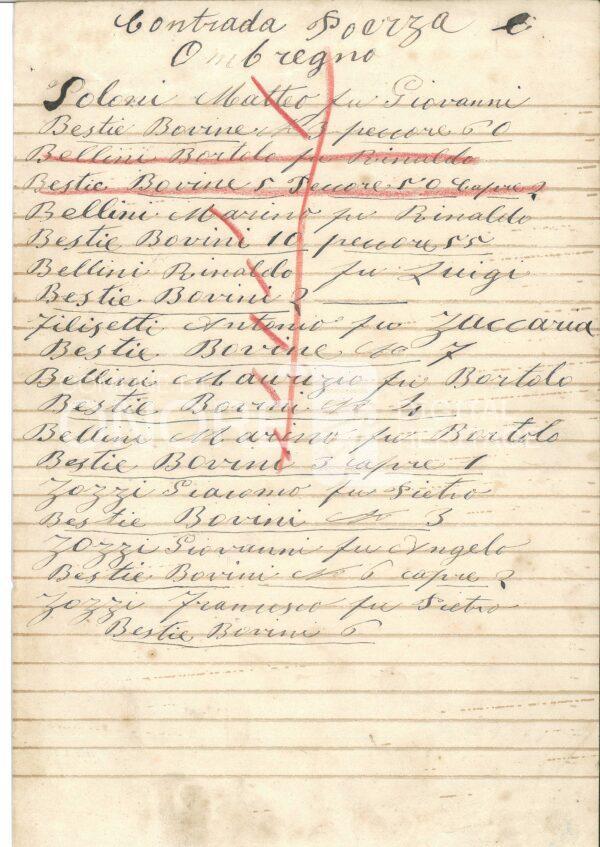 Contrada Poerza e
Ombregno
Poloni Matteo fu Giovanni
Bestie Bovine No 3 peccore 60
Bellini Bortolo fu Rinaldo
Bestie Bovine 5 Peccore 50 Capre 2
Bellini Marino fu Rinaldo
Bestie Bovini 10 peccore 55
Bellini Rinaldo fu Luigi
Bestie Bovini 2
Filisetti Antonio fu Zaccaria
Bestie Bovine No 7
Bellini Maurizio fu Bortolo
Bestie Bovini No 4
Bellini Marino fu Bortolo
Bestie Bovini 3 capre 1
Zozzi Giacomo fu Pietro
Bestie Bovini No 3
Zozzi Giovanni fu Angelo
Bestie Bovini No 6 capre 2
Zozzi Francesco fu Pietro
Bestie Bovini 6